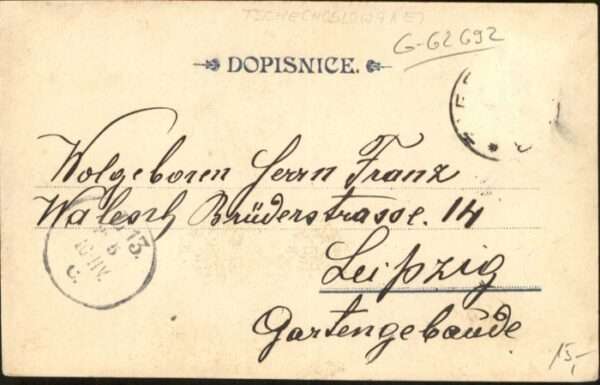 TSCHECHOSLOWAKEI
G-62692
DOPISNICE.
Wolgeboren Herrn Franz
Walesch Brüderstrasse. 14
13.
Leipzig
Gartengebäude
15,-